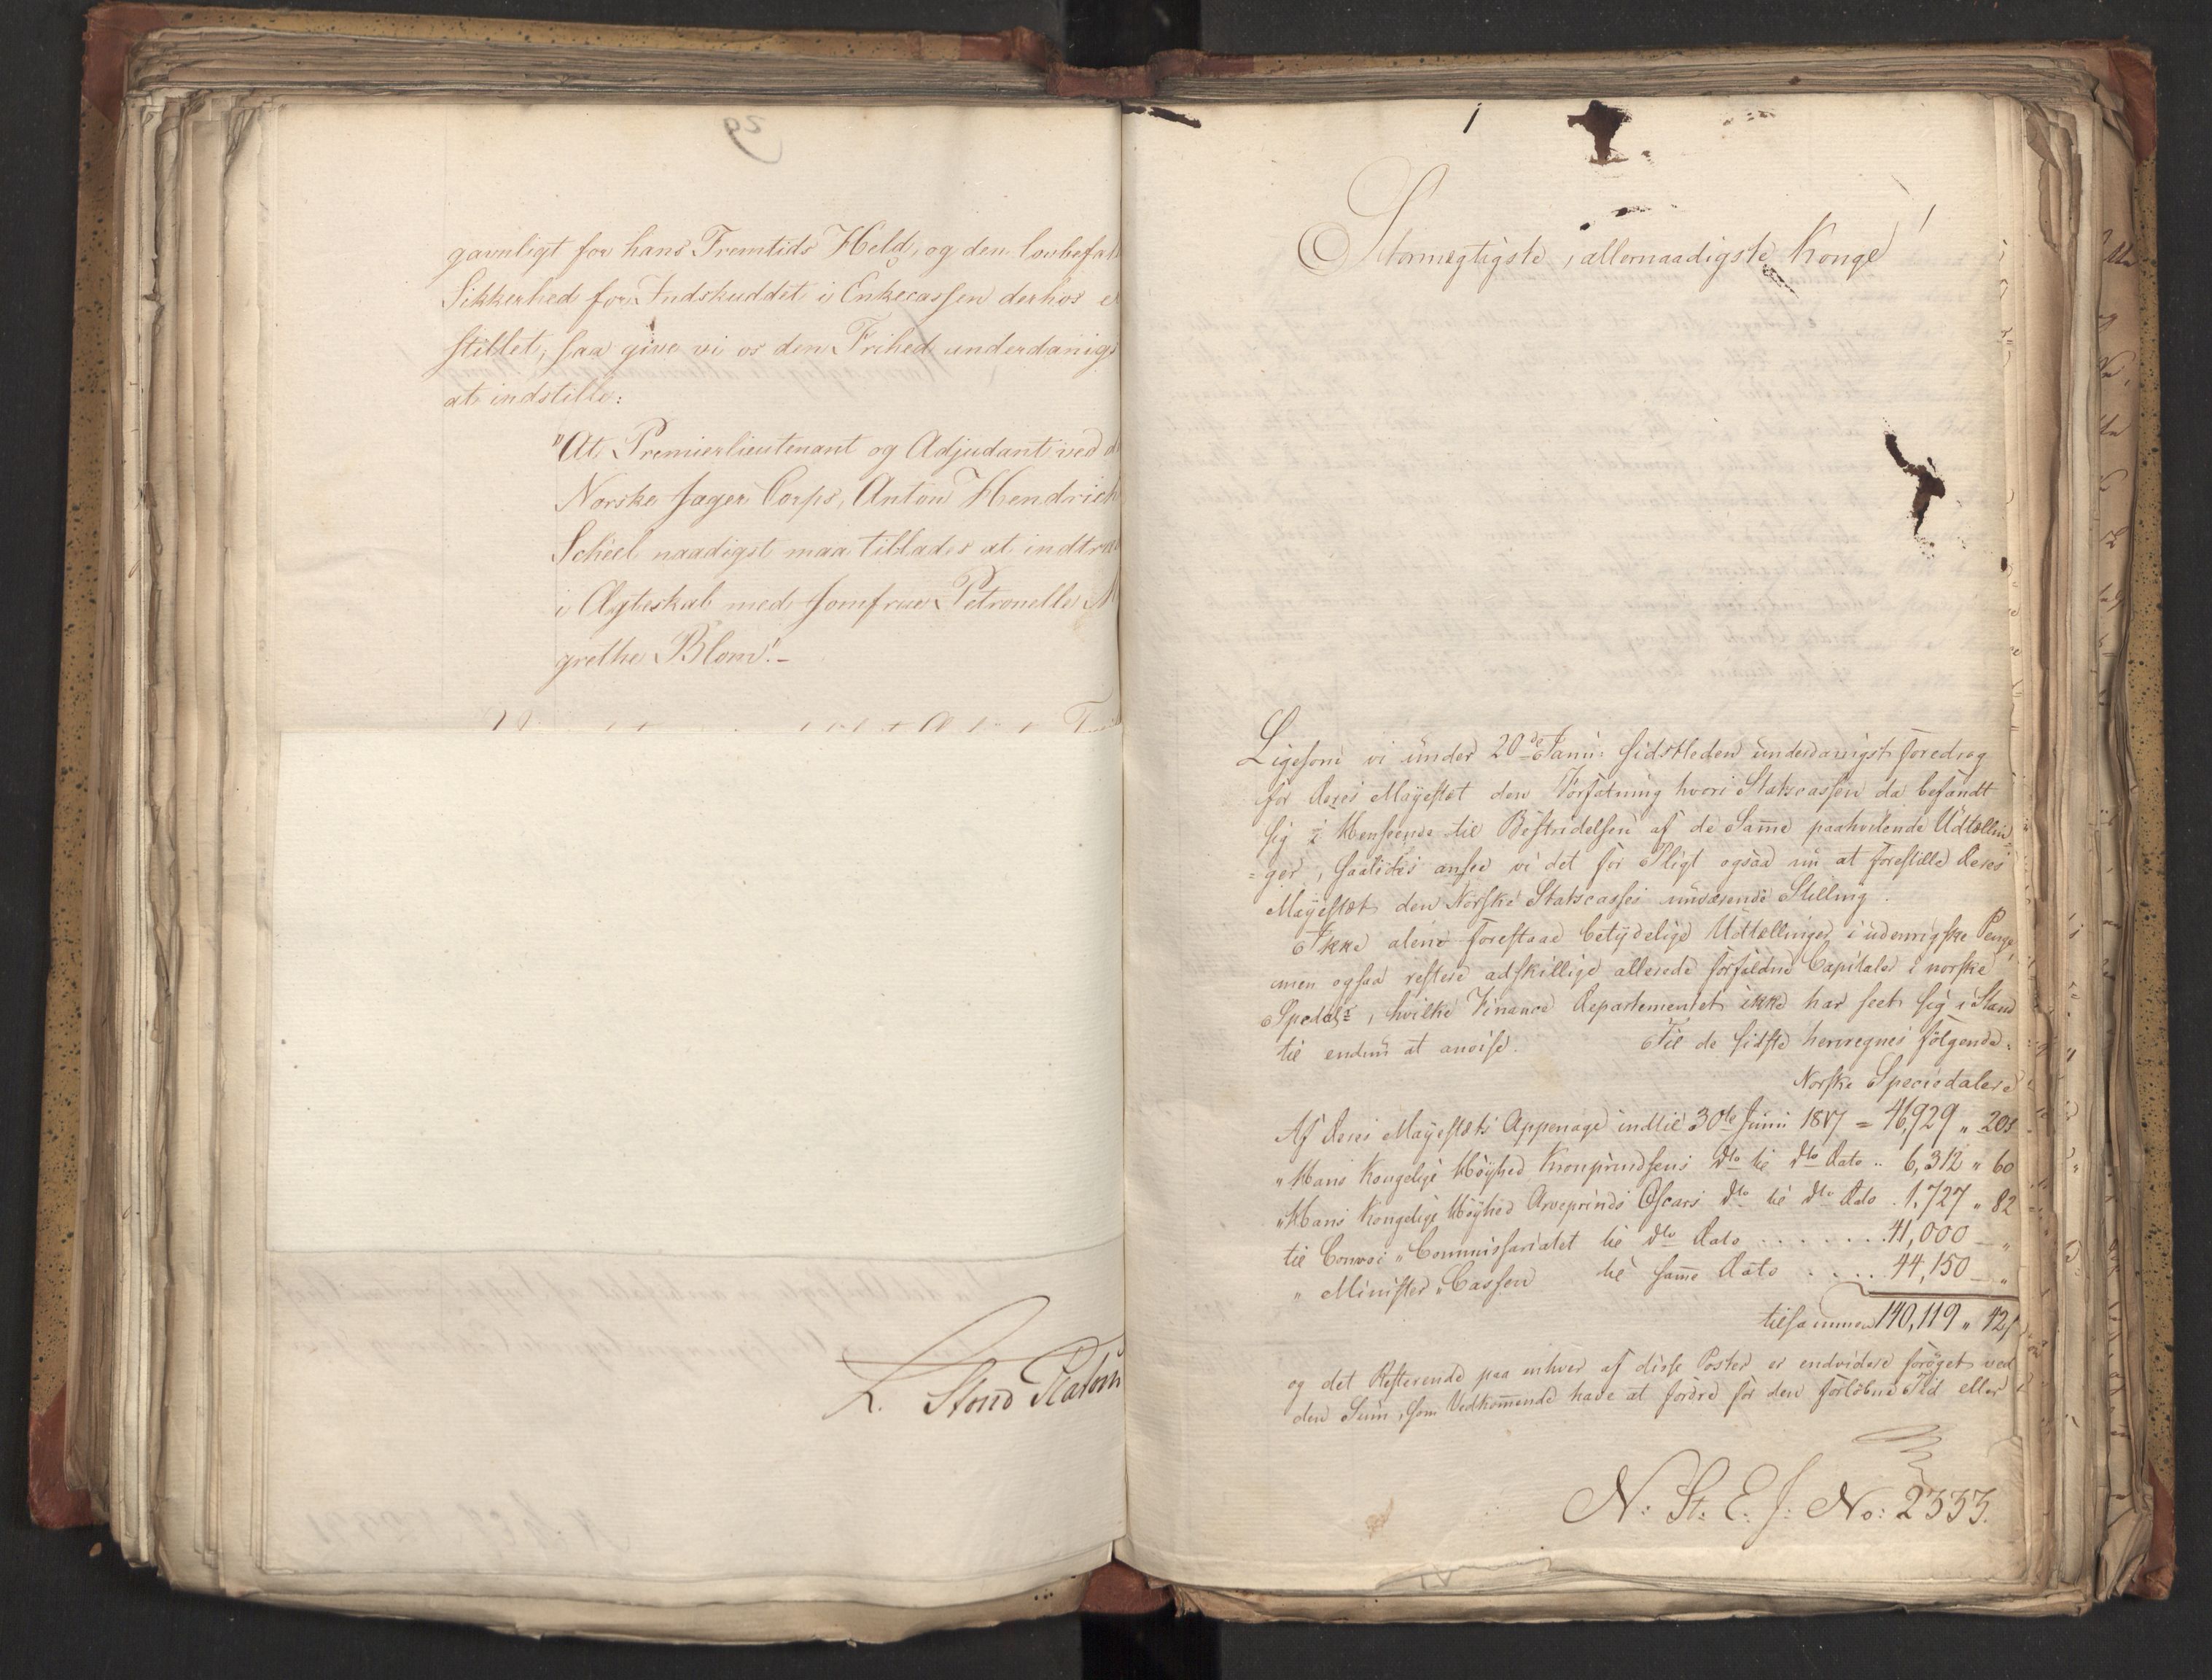 gavnligt for hans Fremtids Held, og den lovbefal
Sikkerhed for Indskuddet i Enkecassen derhos e
stillet, saa give vi os den Frihed underdanigs
at indstille:
"At Premierlieutenant og Adjudant ved d
Norske Jager Corps, Anton Hendrich
Scheel naadigst maa tillades at indtræ
i Ægteskab med Jomfrue Petronelle M
grethe Blom".-
L. Stoud Platou
Stormægtigste, allernaadigste Konge!
Ligesom vi under 20de Janu: sidstleden underdanigst foredrog
for Deres Mayestæt den Forfatning hvori Statscassen da befandt
sig i Henseende til Bestridelsen af de Samme paahvilende Udtællin
=ger, saaledes ansee vi det for Pligt ogsaa nu at forestille Deres
Mayestæt den Norske Statscasses nuværende Stilling.
Ikke alene forestaae betydelige Udtællinger i udenrigske Penge,
men ogsaa restere adskillige allerede forfaldne Capitaler i norske
Spedalr, hvilke Finance Departementet ikke har seet sig i Stand
til endnu at anvise. Til de sidste henregnes følgende:
Norske Speciedalere
Af Deres Mayestæts Appenage indtil 30te Junii 1817 = 46,929 " 20s
" Hans Kongelige Høyhed Kronprindsens Dto til Dto Dato .. 6,312 " 60
" Hans Kongelige Høyhed Arveprinds Oscars Dto til Dto Dato . 1,727 " 82
til Convoi " Commissariatet til Dto Dato . . . . . . . 41,000 — "
" Minister " Cassen til samme Dato . . . . 44,150 — "
tilsammen 140,119 " 42s
og det Resterende paa enhver af disse Poster er endvidere forøget ved
den Sum, som Vedkommende have at fordre for den forløbne Tid efter
N: St. E. J: No: 2333.